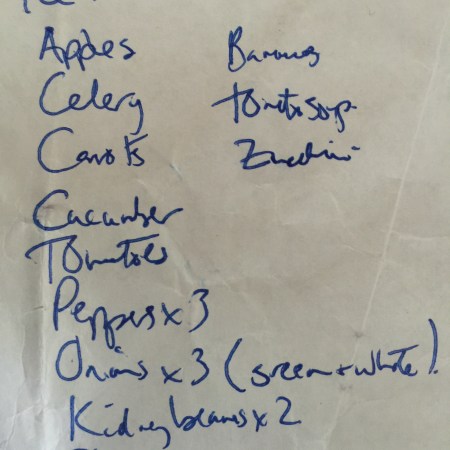 Apples
Celery
Carrots
Cucumber
Tomatoes
Peppers x 3
Onions x 3 (green + white)
Kidney beans x 2
Bananas
Tomato soup
Zucchini